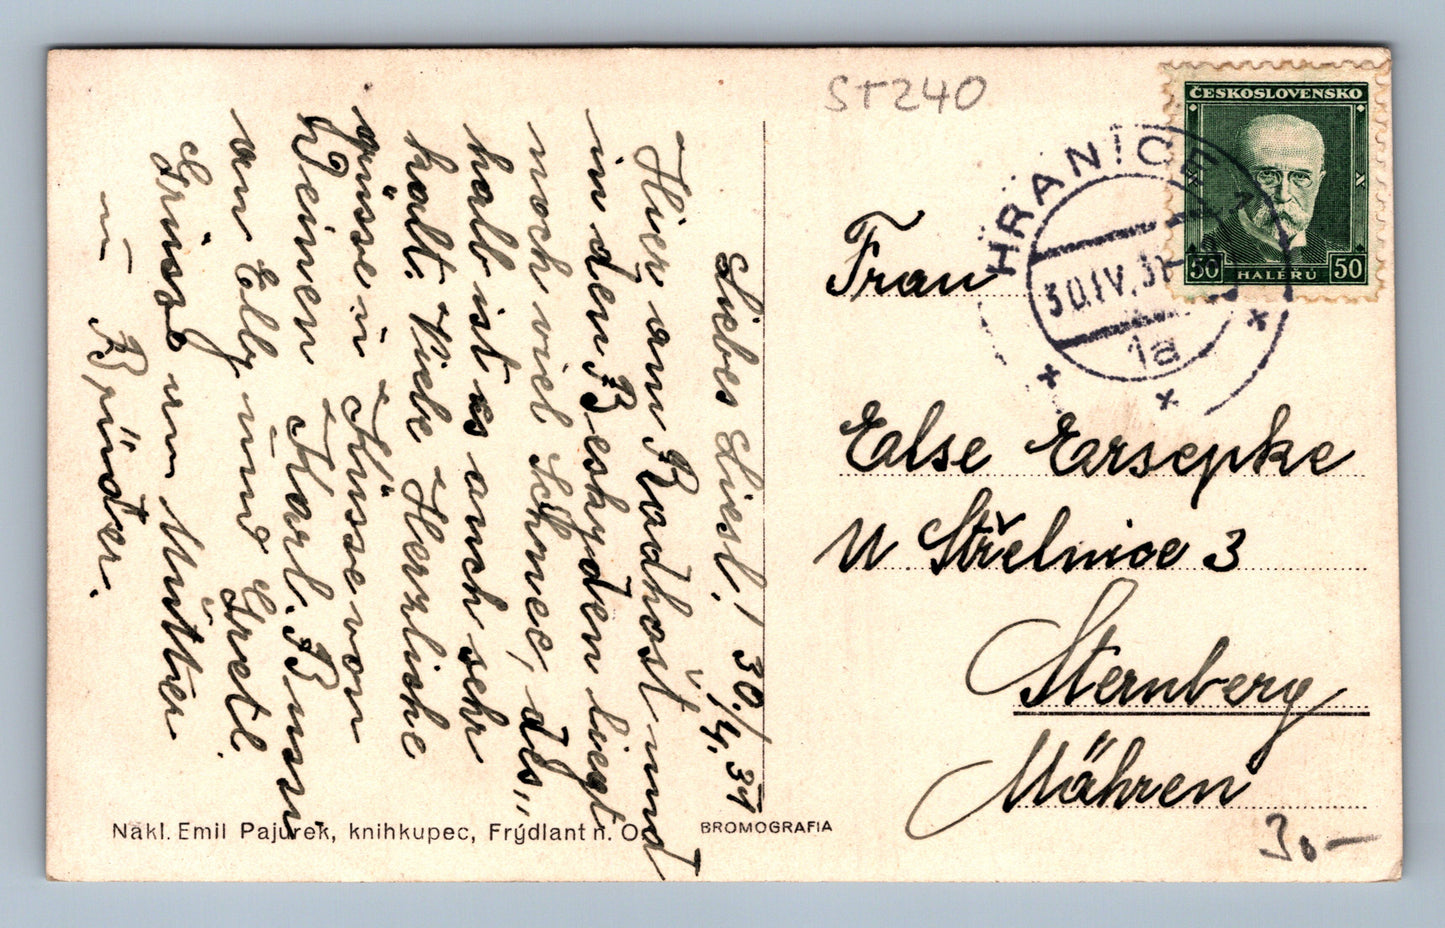 ST240
ČESKOSLOVENSKO
50 HALÉŘŮ 50
HRANICE
30.IV.31
1a
Frau
Else
U Střelnice 3
Sternberg
Mähren
30.-
Liebes Liesl! 30./4. 31
Hier am Radhošt und
in den Beskyden liegt
noch viel Schnee, des„
halb ist es auch sehr
kalt. Viele Herzliche
Grüsse u Küsse von
Deinen Karl. Bussi
an Elly und Gretl.
Grüsse an Mutter
u Brüder.
Nákl. Emil Pajurek, knihkupec, Frýdlant n. O.
BROMOGRAFIA